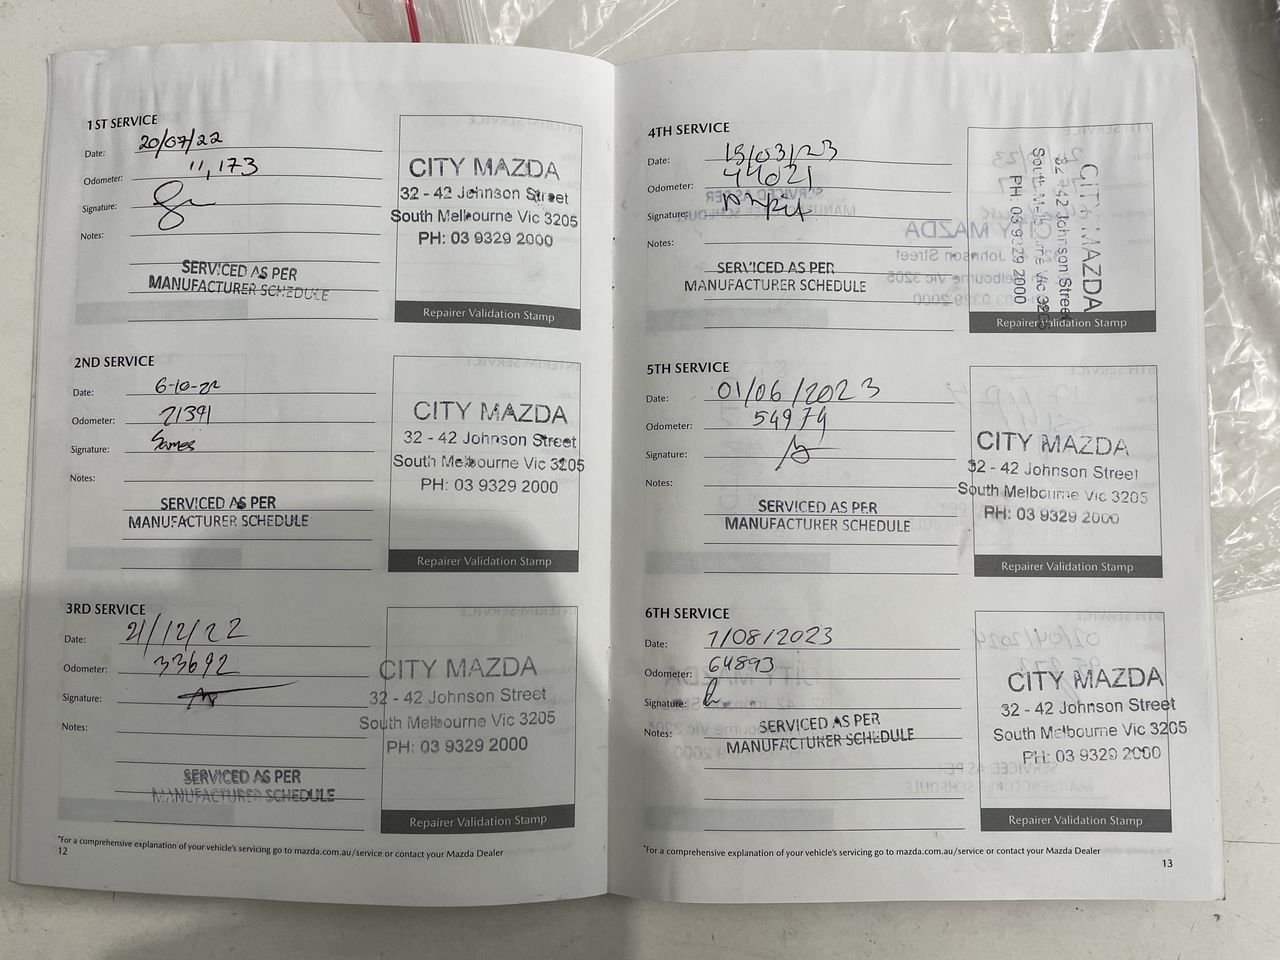 1ST SERVICE
Date: 20/07/22
Odometer: 11,173
Signature:
Notes:
SERVICED AS PER
MANUFACTURER SCHEDULE
CITY MAZDA
32 - 42 Johnson Street
South Melbourne Vic 3205
PH: 03 9329 2000
Repairer Validation Stamp
2ND SERVICE
Date: 6-10-22
Odometer: 21391
Signature: James
Notes:
SERVICED AS PER
MANUFACTURER SCHEDULE
CITY MAZDA
32 - 42 Johnson Street
South Melbourne Vic 3205
PH: 03 9329 2000
Repairer Validation Stamp
3RD SERVICE
Date: 21/12/22
Odometer: 33692
Signature:
Notes:
SERVICED AS PER
MANUFACTURER SCHEDULE
CITY MAZDA
32 - 42 Johnson Street
South Melbourne Vic 3205
PH: 03 9329 2000
Repairer Validation Stamp
*For a comprehensive explanation of your vehicle's servicing go to mazda.com.au/service or contact your Mazda Dealer
12
4TH SERVICE
Date: 15/03/23
Odometer: 44021
Signature:
Notes:
SERVICED AS PER
MANUFACTURER SCHEDULE
CITY MAZDA
32 - 42 Johnson Street
South Melbourne Vic 3205
PH: 03 9329 2000
Repairer Validation Stamp
5TH SERVICE
Date: 01/06/2023
Odometer: 54974
Signature:
Notes:
SERVICED AS PER
MANUFACTURER SCHEDULE
CITY MAZDA
32 - 42 Johnson Street
South Melbourne Vic 3205
PH: 03 9329 2000
Repairer Validation Stamp
6TH SERVICE
Date: 7/08/2023
Odometer: 64893
Signature:
Notes:
SERVICED AS PER
MANUFACTURER SCHEDULE
CITY MAZDA
32 - 42 Johnson Street
South Melbourne Vic 3205
PH: 03 9329 2000
Repairer Validation Stamp
*For a comprehensive explanation of your vehicle's servicing go to mazda.com.au/service or contact your Mazda Dealer
13